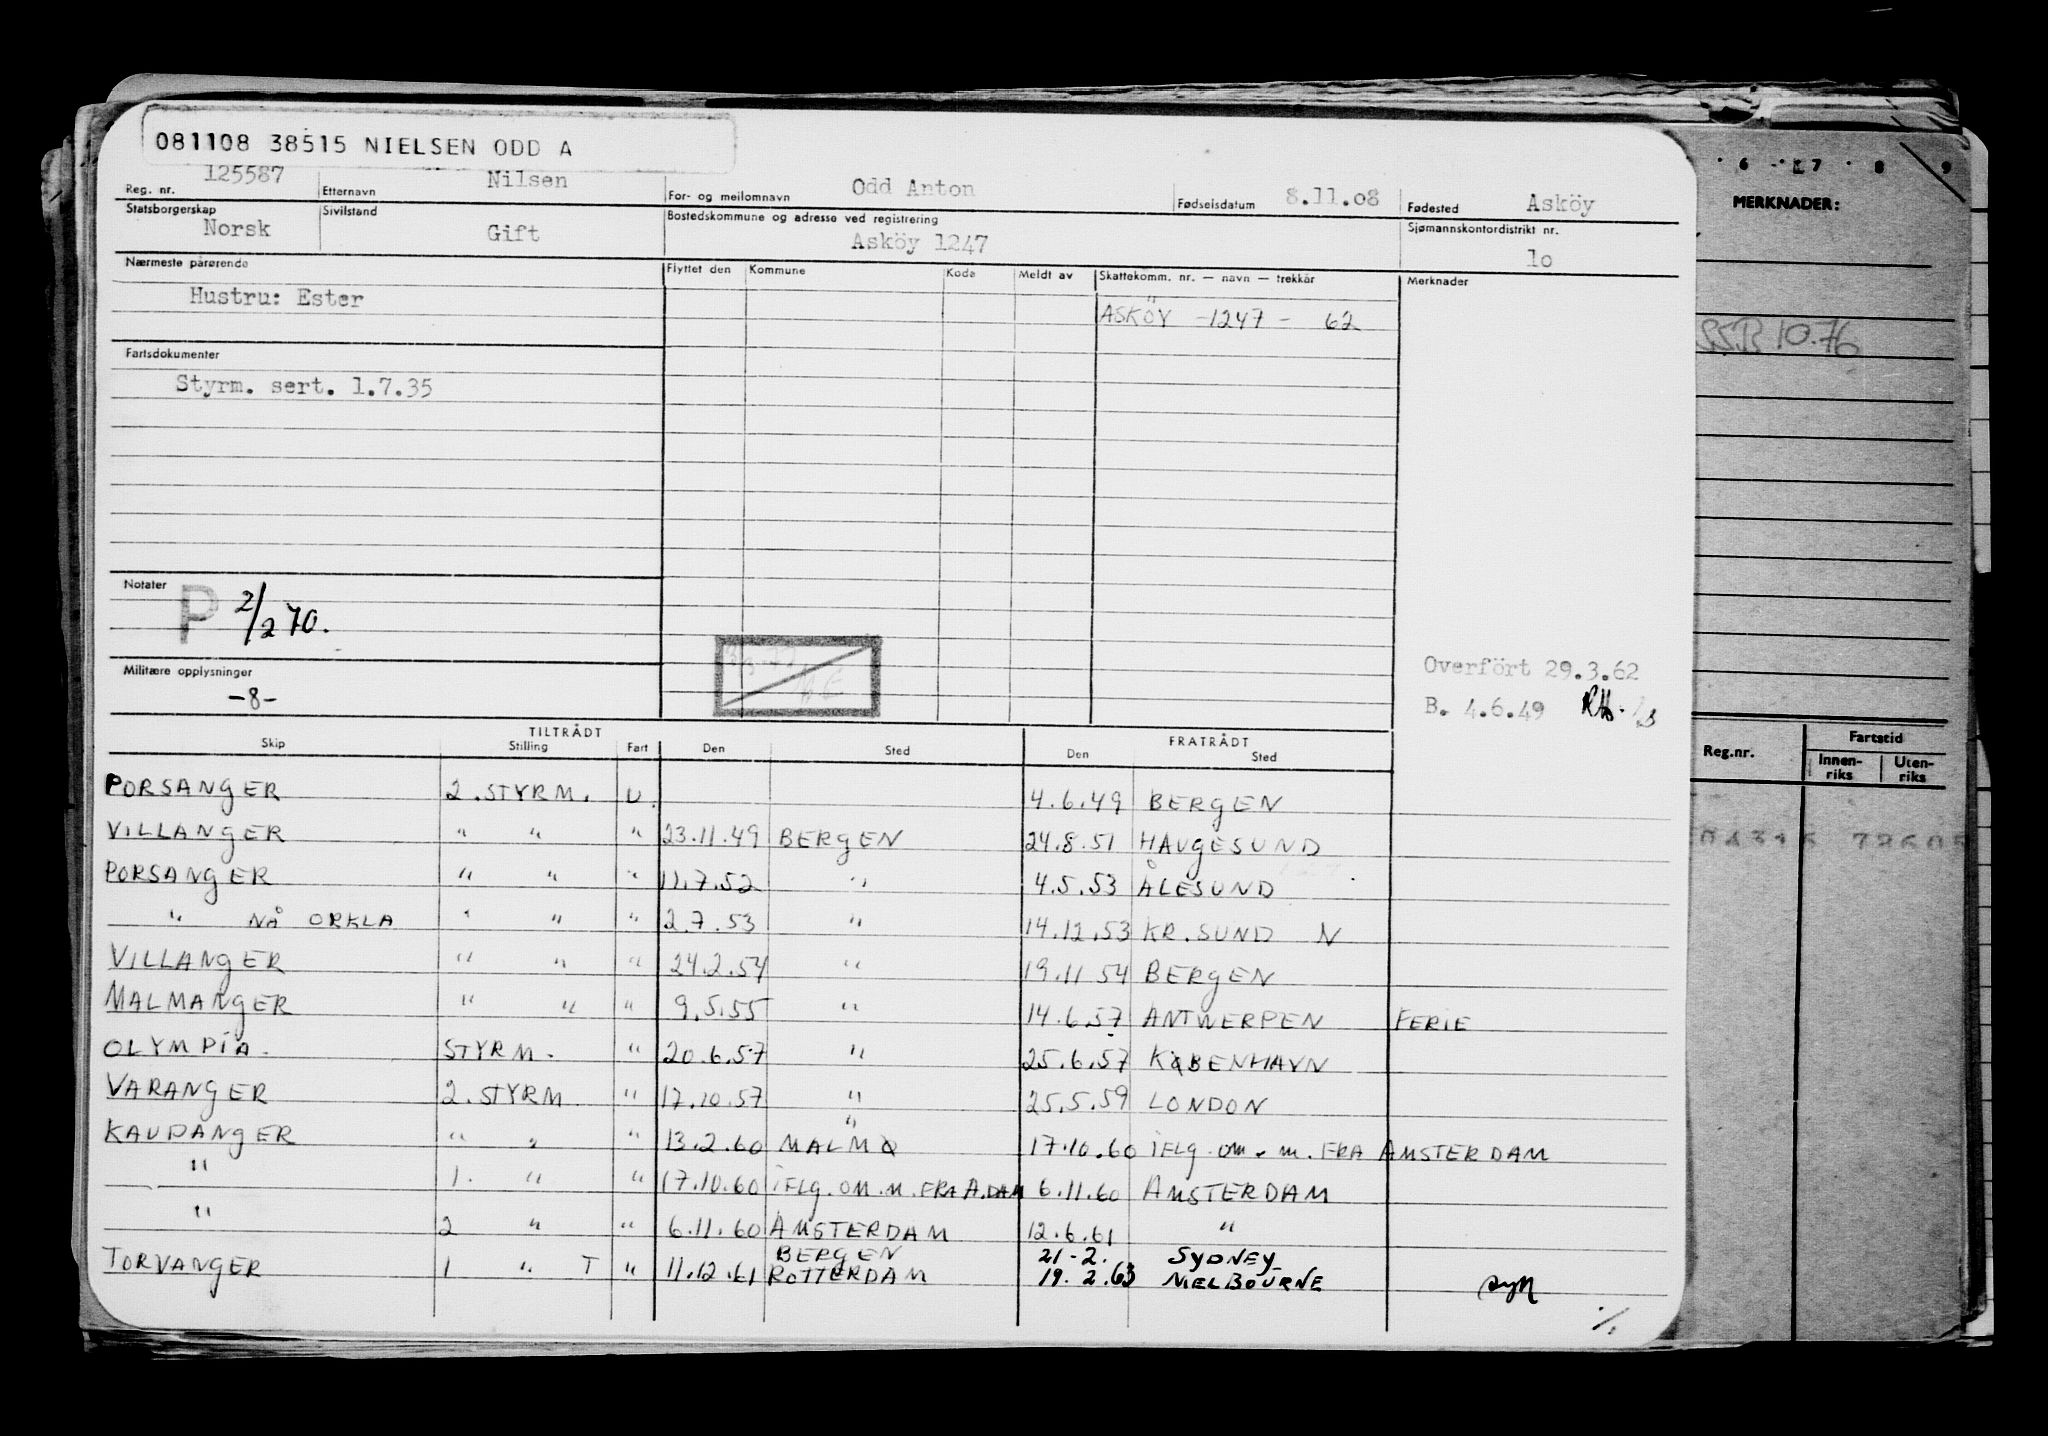 081108 38515 NIELSEN ODD A
Reg. nr. 125587 Etternavn Nilsen For- og mellomnavn Odd Anton Fødselsdatum 8.11.08 Fødested Asköy
Statsborgerskap Norsk Sivilstand Gift Bostedskommune og adresse ved registrering Asköy 1247 Sjømannskontordistrikt nr. 10
Nærmeste pårørende Flyttet den Kommune Kode Meldt av Skattekomm. nr. — navn — trekkår Merknader
Hustru: Ester
ASKÖY -1247- 62
Fartsdokumenter
Styrm. sert. 1.7.35
Notater
P 2/2 70.
Militære opplysninger
-8-
Overfört 29.3.62
B. 4.6.49
TILTRÅDT FRATRÅDT
Skip Stilling Fart Den Sted Den Sted
PORSANGER 2. STYRM. U. 4.6.49 BERGEN
VILLANGER " " " 23.11.49 BERGEN 24.8.51 HAUGESUND
PORSANGER " " " 11.7.52 " 4.5.53 ÅLESUND
" NÅ ORKLA " " " 2.7.53 " 14.12.53 KR.SUND N
VILLANGER " " " 24.2.54 " 19.11 54 BERGEN
MALMANGER " " " 9.5.55 " 14.6.57 ANTWERPEN FERIE
OLYMPIA. STYRM. " 20.6.57 " 25.6.57 KØBENHAVN
VARANGER 2. STYRM " 17.10.57 " 25.5.59 LONDON
KAUPANGER " " " 13.2.60 MALMÖ 17.10.60 iFLG. om. m. FRA AMSTERDAM
" 1. " " 17.10.60 iFLG. OM. M. FRA A.DAM 6.11.60 AMSTERDAM
" 2 " " 6.11.60 AMSTERDAM 12.6.61 "
BERGEN 21-2. SYDNEY
TORVANGER 1 " T " 11.12.61 ROTTERDAM 19.2.63 MELBOURNE
6 7 8 9
MERKNADER:
10.76
Reg.nr. Fartstid
Innen-riks Uten-riks